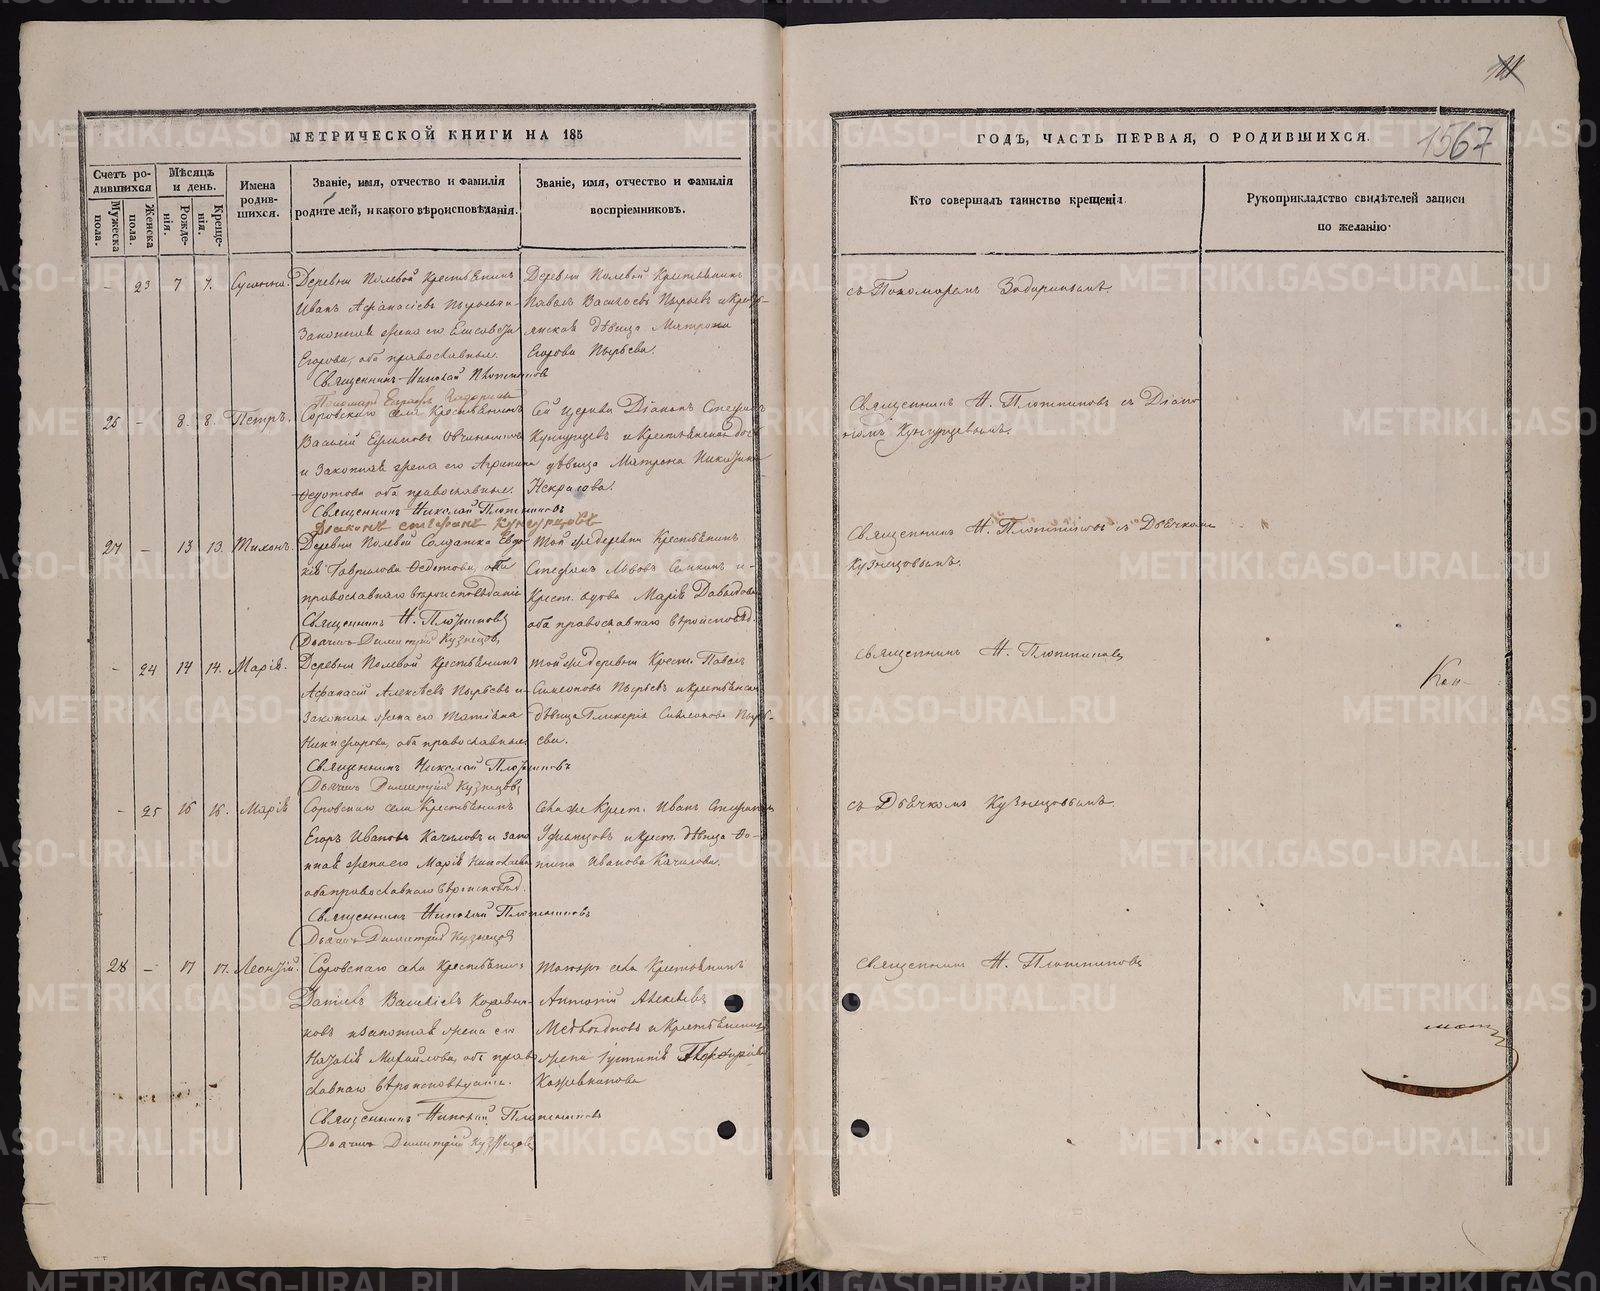 МЕТРИЧЕСКОЙ КНИГИ НА 185
Счетъ ро-
дившихся
Мѣсяцъ
и день.
Имена
родив-
шихся.
Званіе, имя, отчество и фамилія
родителей, и какого вѣроисповѣданія.
Званіе, имя, отчество и фамилія
воспріемниковъ.
Мужеска
пола.
Женска
пола.
Рожде-
нія.
Креще-
нія.
- 23 7 7.
Деревни Полевой Крестьянинъ
Иванъ Афанасіевъ
Законная жена его Елисавета
Егорова, оба православные.
Священникъ Николай Плотниковъ
Деревни Полевой Крестьянинъ
Павелъ Васильевъ Пырьевъ и Кресть-
янская дѣвица Матрона
Егорова Пырьева.
25 - 8. 8. Петръ.
Соровскаго села Крестьянинъ
Василій Ефимовъ Овчинниковъ
и Законная жена его Агрипина
Ѳедотова оба православные.
Священникъ Николай Плотниковъ
Діаконъ Стефанъ Кунгурцовъ
Сей церкви Діаконъ Стефанъ
Кунгурцевъ и Крестьянская доч
дѣвица Матрона Никитина
Некрасова.
27 - 13 13. Тихонъ.
Деревни Полевой Солдатка Евдо-
кія Гаврилова Ѳедотова,
православнаго вѣроисповѣданія
Священникъ Н. Плотниковъ
Дьячекъ Димитрій Кузнецовъ
Той же деревни Крестьянинъ
Стефанъ Львовъ и-
Крест. вдова Марія Давыдова
оба православнаго вѣроисповѣд.
- 24 14 14. Марія.
Деревни Полевой Крестьянинъ
Афанасій Алексѣевъ Пырьевъ и-
Законная жена его Татіана
Никифорова, оба православные.
Священникъ Николай Плотниковъ
Дьячекъ Димитрій Кузнецовъ
Той же деревни Крест. Павелъ
Симеоновъ Пырьевъ и крестьянская
дѣвица Гликерія Симеонова Пырь-
ева.
- 25 16 16. Марія
Соровскаго села Крестьянинъ
Егоръ Ивановъ Качаловъ и зако
нная жена его Марія Николаева
оба православнаго вѣроисповѣд.
Священникъ Николай Плотниковъ
Дьячекъ Димитрій Кузнецовъ
Села же Крест. Иванъ Стефановъ
Уфимцовъ и крест. дѣвица Ѳо-
тина Иванова Качалова.
28 - 17 17. Леонтій.
Соровскаго села Крестьянинъ
Даніилъ Василіевъ Кожевни-
ковъ и Законная жена его
Наталія Михайлова, оба право
славнаго вѣроисповѣданія.
Священникъ Николай Плотниковъ
Дьячекъ Димитрій Кузнецовъ
Тогожъ села Крестьянинъ
Антоній Алексѣевъ
Медвѣдковъ и Крестьянская
жена Іустинія Порфирьева
Кожевникова
1567
ГОДЪ, ЧАСТЬ ПЕРВАЯ, О РОДИВШИХСЯ.
Кто совершалъ таинство крещенія.
Рукоприкладство свидѣтелей записи
по желанію.
съ Пономаремъ
Священникъ Н. Плотниковъ съ Діако
номъ Кунгурцевымъ.
Священникъ Н. Плотниковъ съ Дьячкомъ
Кузнецовымъ.
Священникъ Н. Плотниковъ
съ Дьячкомъ Кузнецовымъ.
Священникъ Н. Плотниковъ
METRIKI.GASO-URAL.RU